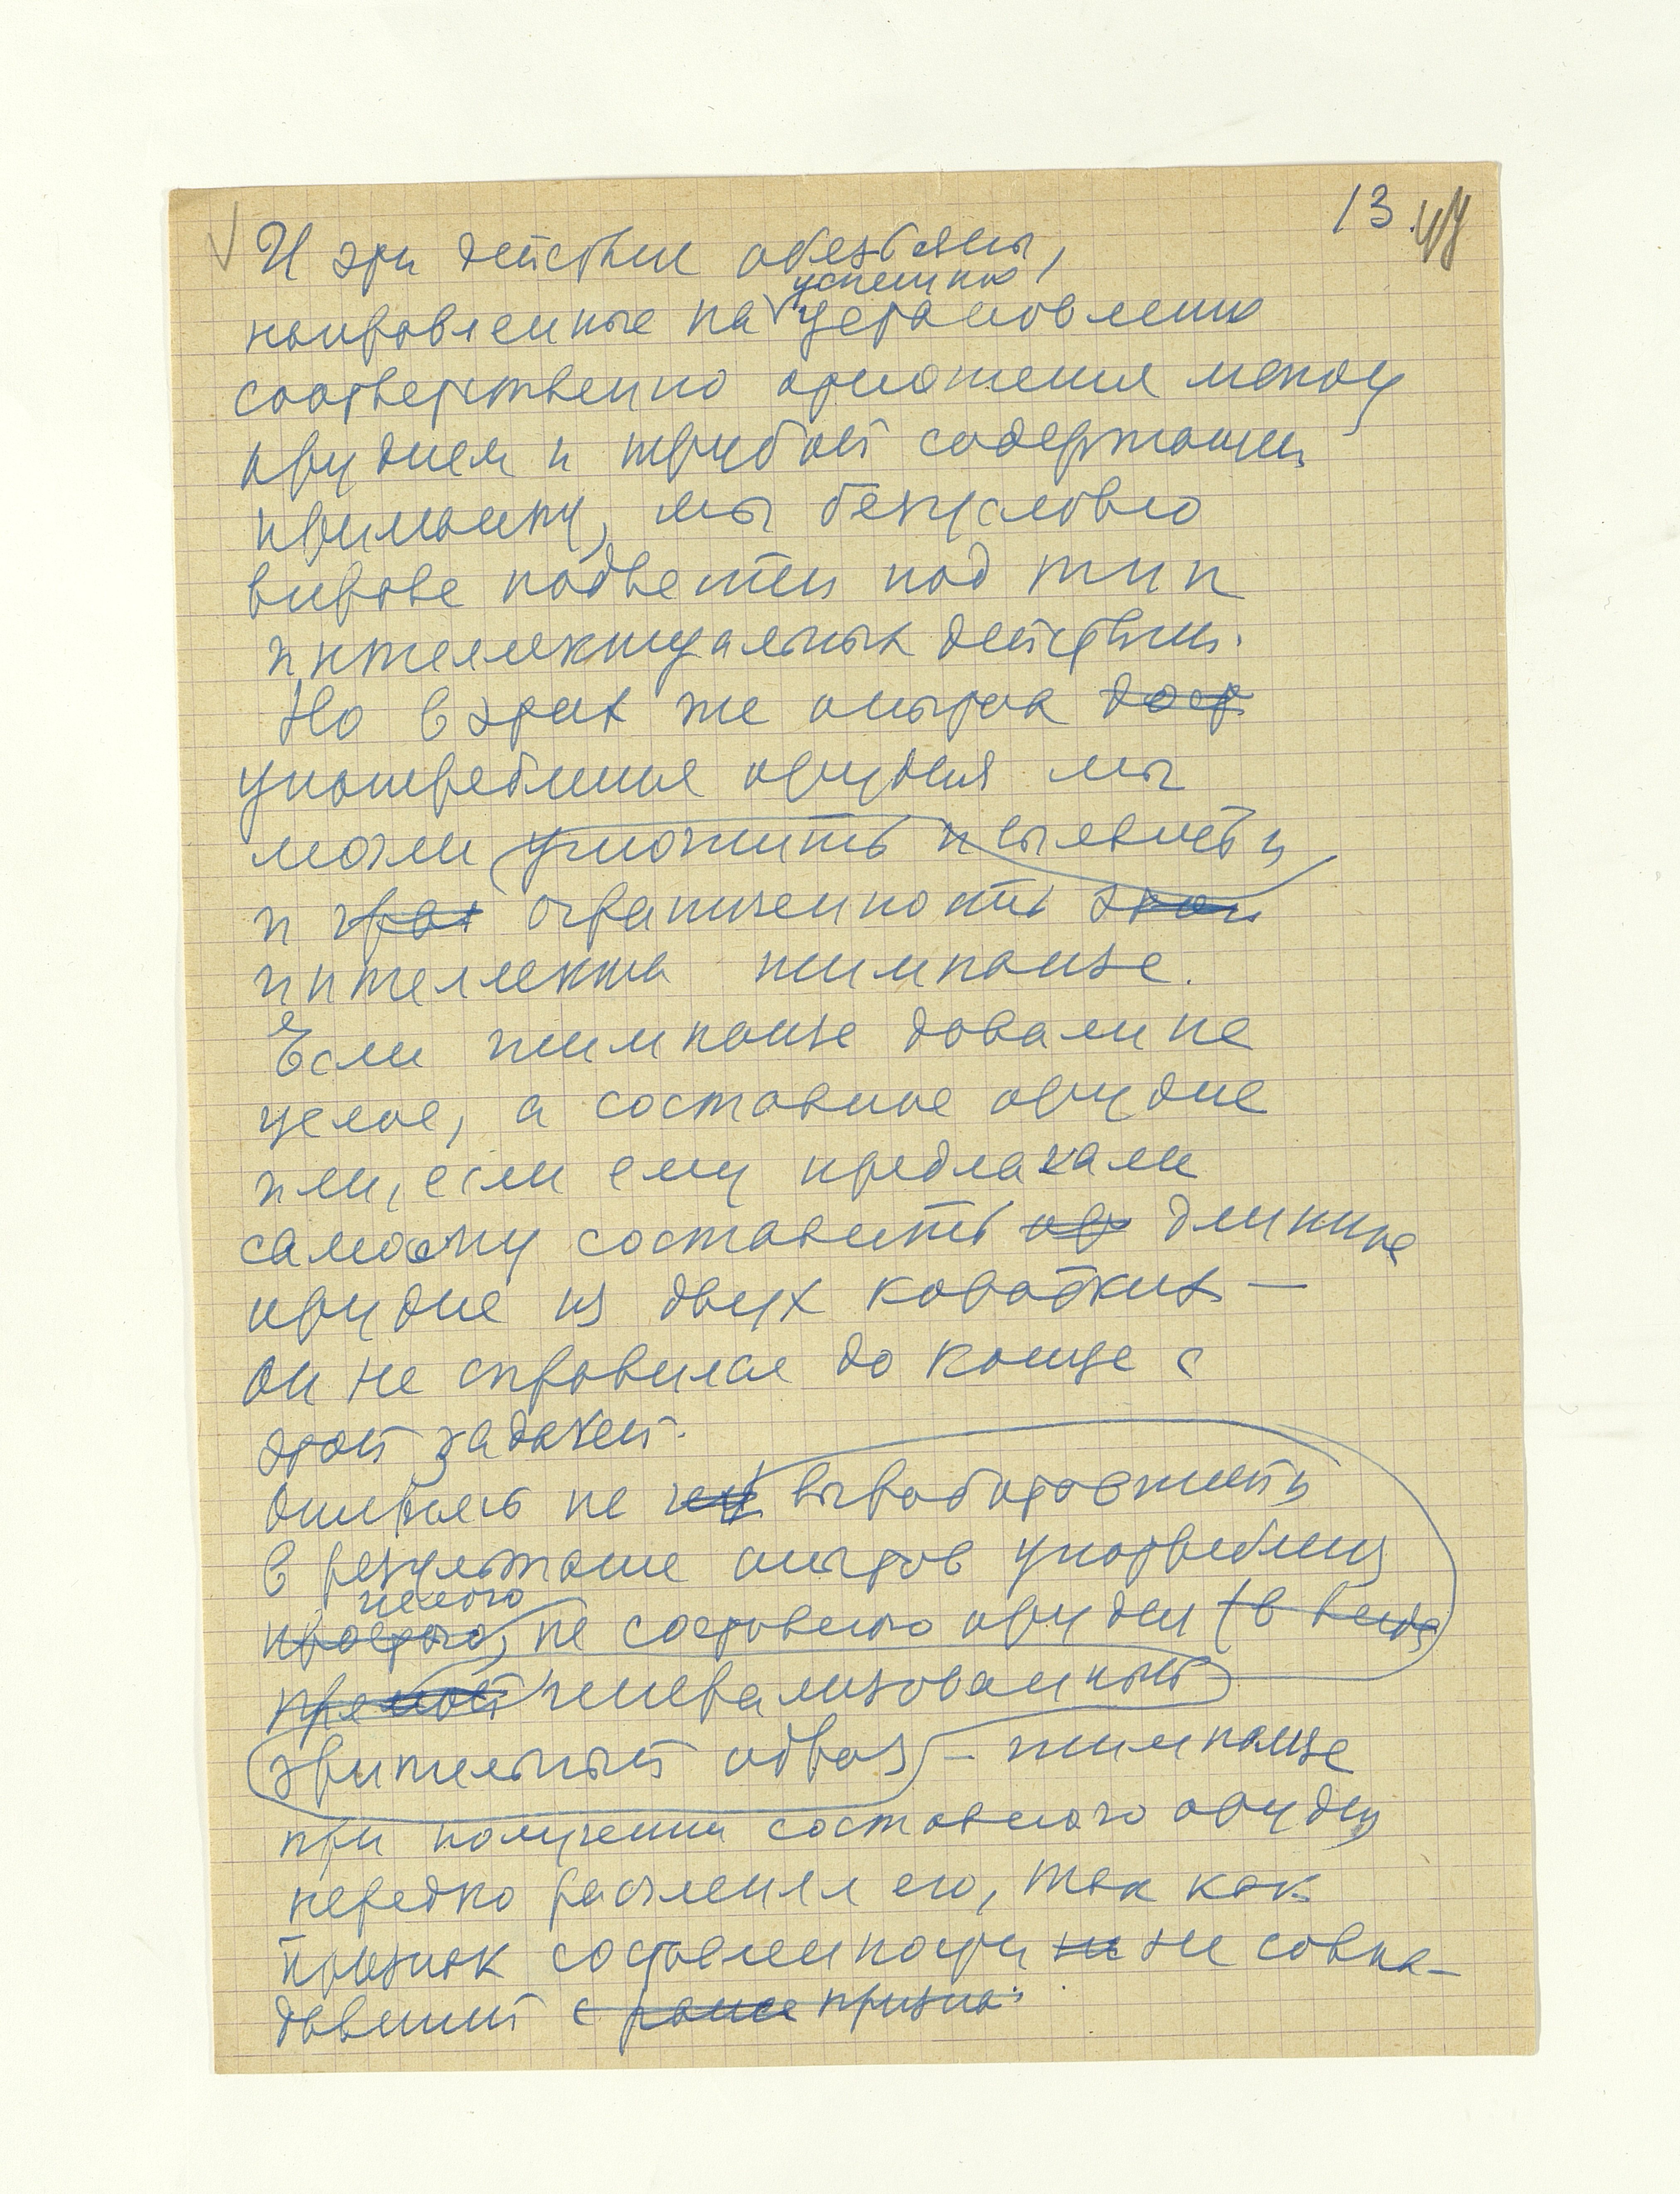 13
И эти действия обезьяны,
успешно
направленные на установление
соответственно отношения между
орудием и трубой содержащей
приманку, мы безусловно
вправе подвести под тип
интеллектуальных действий.
Но в этих же опытах дост
употребления орудия мы
могли уложить и выявить
и ограниченность этои
интеллекта шимпанзе.
Если шимпанзе давали не
целое, а составное орудие
или, если ему предлагали
самому составить ор длинное
орудие из двух коротких —
он не справился до конца с
этой задачей.
Опираясь не на выработавшийся
в результате опытов употребления
целого
простого, не составного орудия (в виде
прямой генерализованный
зрительный образ – шимпанзе
при получении составного орудия
нередко расчленял его, так как
признак составленности не не совпа-
давший с ранее призна